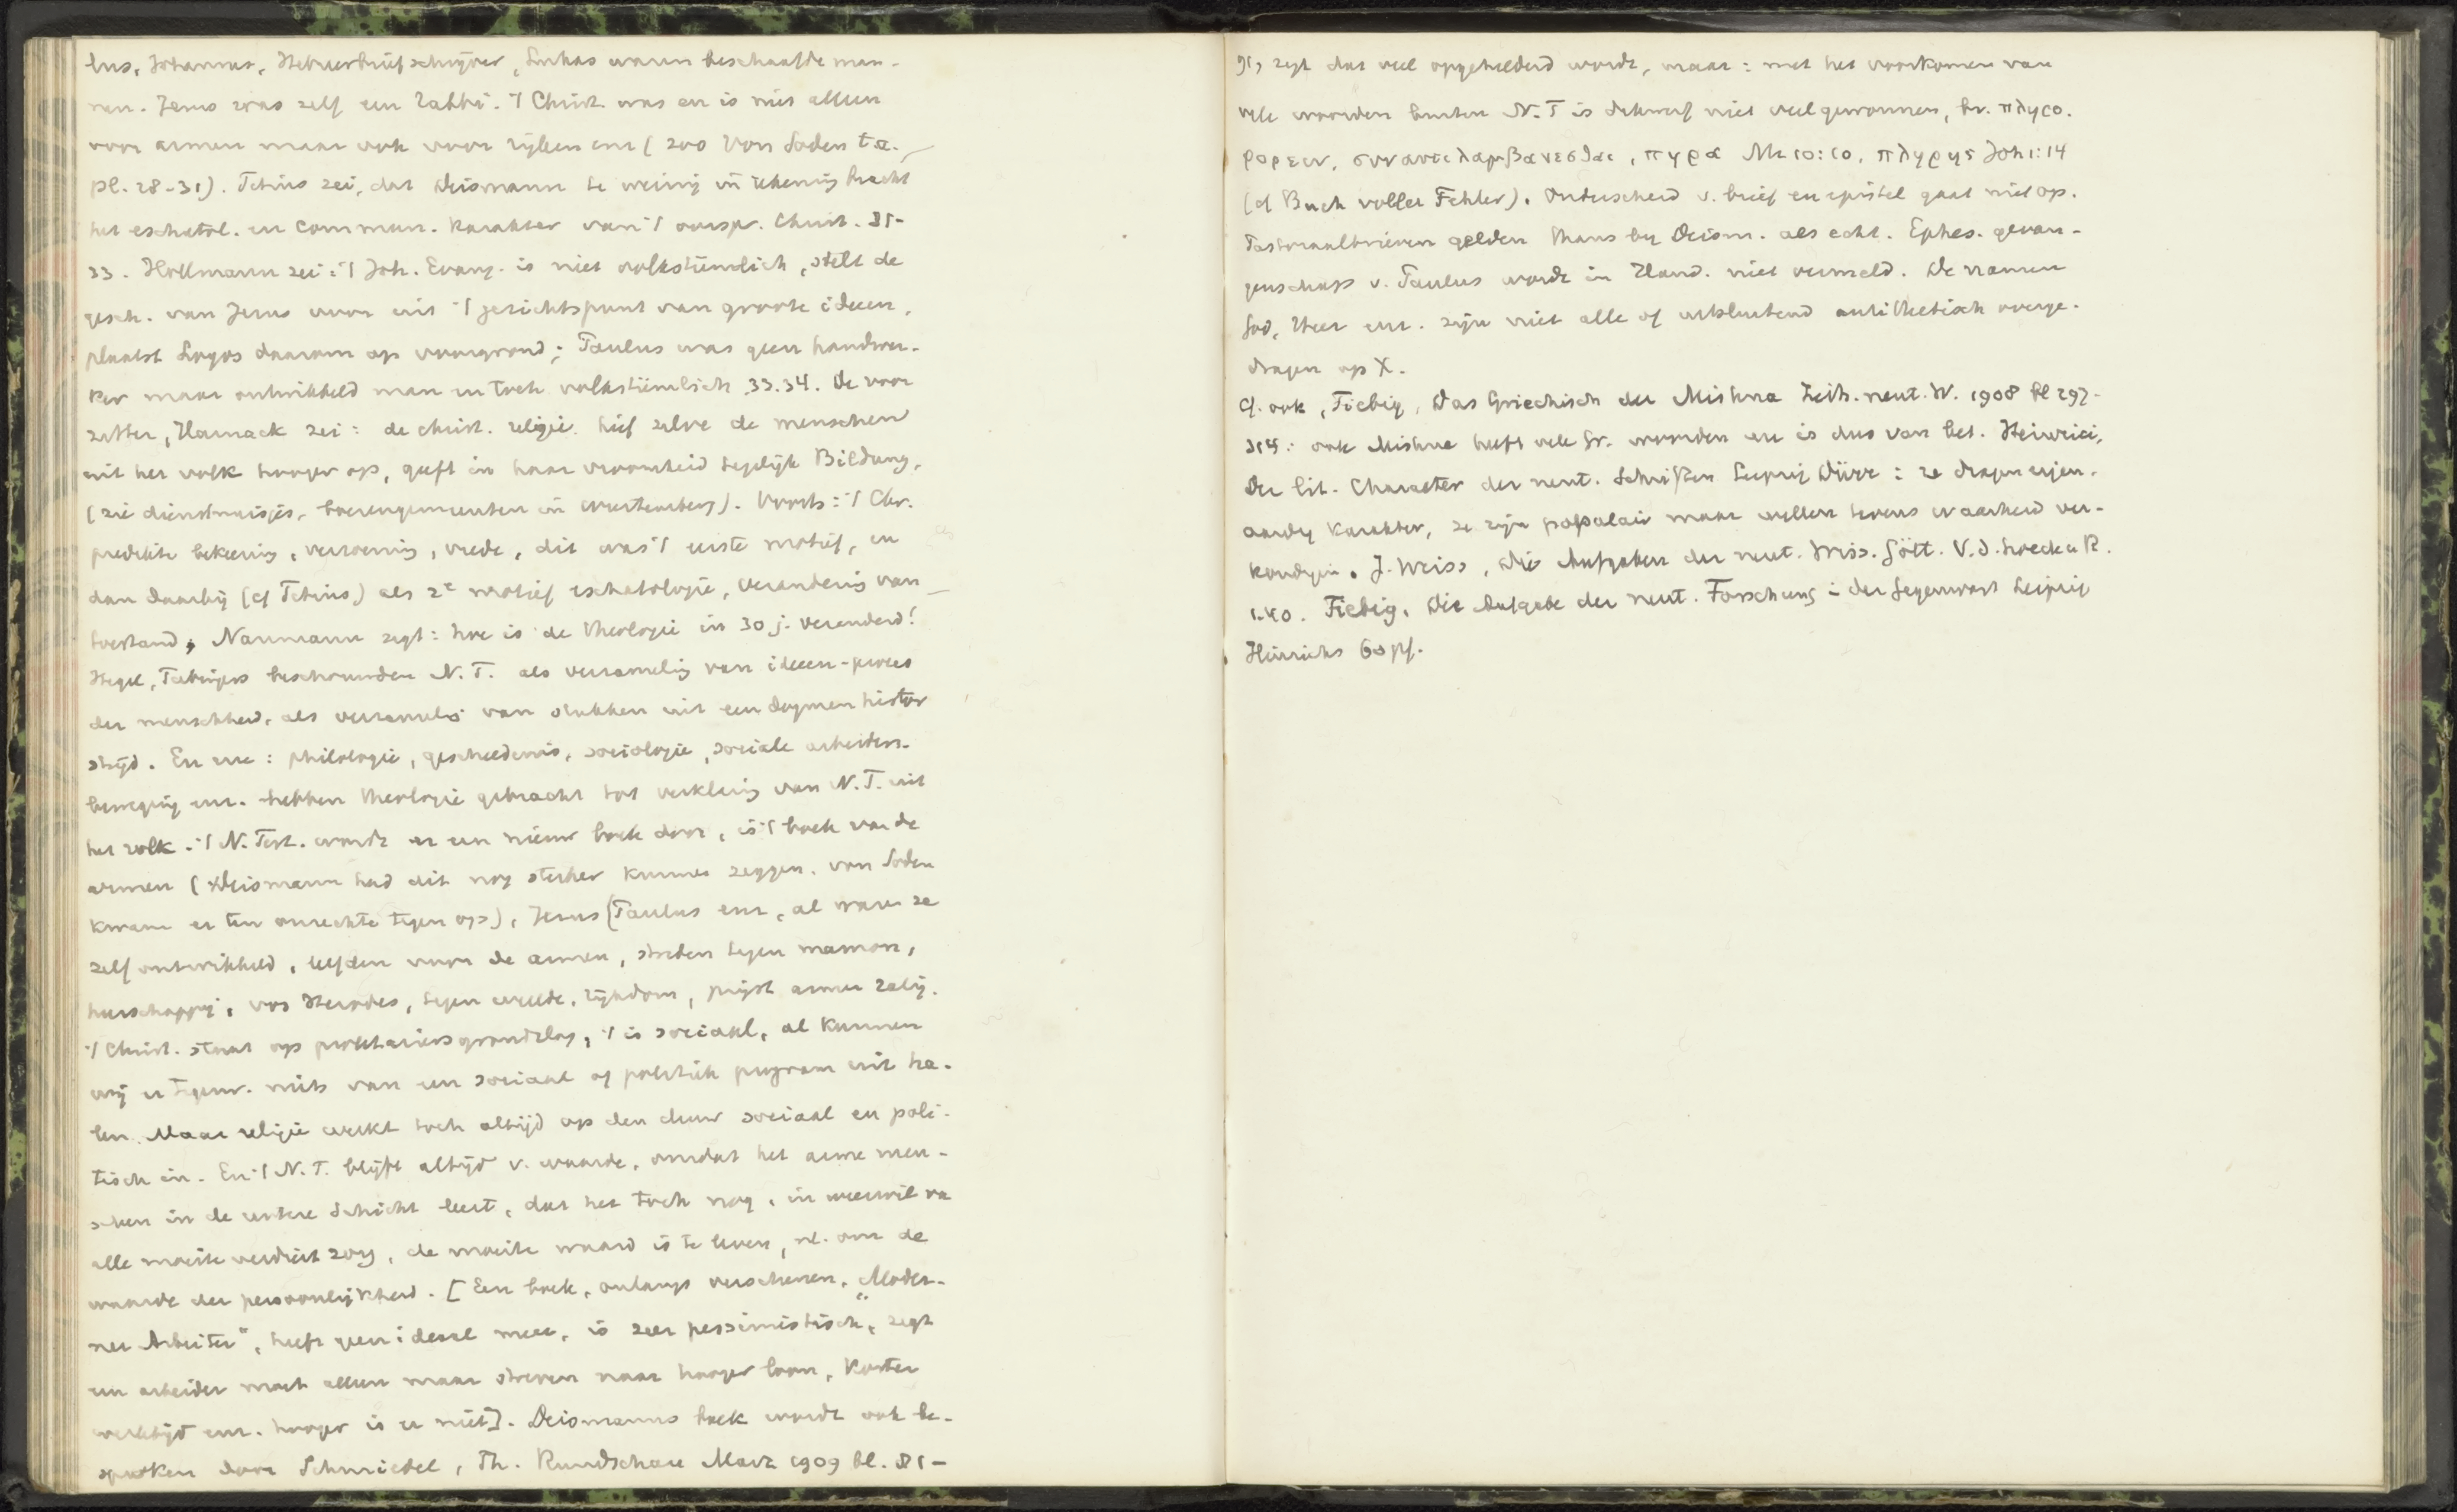 lus, Johannes, Hebreerbriefschrijver, Lukas waren beschaafde man-
nen. Jezus was zelf een Rabbi. 't Christ. was en is niet alleen
voor armen maar ook voor rijken enz (zoo Von Soden t.a.
pl. 28-31). Titius zei, dat Deismann te weinig in rekening bracht
het eschatol. en commun. karakter van 't oorspr. Christ. 31-
33. Hollmann zei: 't Joh. Evang. is niet volkstümlich, stelt de
gesch. van Jezus voor uit 't gezichtspunt van groote ideeen,
plaatst Logos daarom op voorgrond; Paulus was geen handwer-
ker maar ontwikkeld man en toch volkstümlich. 33.34. De voor
zitter, Harnack zei: de christ. religie hief zelve de menschen
uit het volk hooger op, geeft in haar vroomheid tegelijk Bildung,
(zie dienstmeisjes, boerengemeenten in Wurtemberg). Voorts: 't Chr.
predikte bekeering, verzoening, vrede, dit was 't eerste motief, en
dan daarbij (cf Titius) als 2e motief eschatologie, verandering van
toestand, Naumann zegt: hoe is de theologie in 30 j. veranderd!
Hegel, Tubingers beschouwden N.T. als verzameling van ideeen-proces
der menschheid, als verzameling van stukken uit een dogmenhistor
strijd. En nu: philologie, geschiedenis, sociologie, sociale arbeiders-
beweging enz. hebben theologie gebracht tot verklaring van N.T. uit
het volk. 't N. Test. wordt er een nieuw boek door, is 't boek van de
armen (Deismann had dit nog sterker kunnen zeggen. von Soden
kwam er ten onrechte tegen op), Jezus (Paulus enz, al waren ze
zelf ontwikkeld, leefden voor de armen, streden tegen mamon,
heerschappij, vos Herodes, tegen weelde, rijkdom, prijst armen zalig.
't Christ. staat op proletariersgrondslag, 't is sociaal, al kunnen
wij er tegenw. niets van een sociaal of politiek program uit ha-
len. Maar religie werkt toch altijd op den duur sociaal en poli-
tisch in. En 't N.T. blijft altijd v. waarde, omdat het arme men-
schen in de untere Schicht leert, dat het toch nog, in weerwil van
alle moeite verdriet zorg, de moeite waard is te leven, nl. om de
waarde der persoonlijkheid. [Een boek, onlangs verschenen, „Moder-
ner Arbeiter", heeft geen ideaal meer, is zeer pessimistisch, zegt
een arbeider moet alleen maar streven naar hooger loon, korter
werktijd enz. hooger is er niet]. Deismanns boek wordt ook be-
sproken door Schmiedel, Th. Rundschau Marz 1909 bl. 81-
91, zegt dat veel opgehelderd wordt, maar: met het voorkomen van
vele woorden buiten N.T is dikwerf niet veel gewonnen, bv. πληρο.
φορειν, συναντιλαμβανεσθαι, πηρα Mt 10:10, πληρης Joh 1:14
(cf Buch voller Fehler). Onderscheid v. brief en epistel gaat niet op.
Pastoraalbrieven gelden thans by Deism. als echt. Ephes. gevan-
genschap v. Paulus wordt in Hand. niet vermeld. De namen
God, Heer enz. zijn niet alle of uitsluitend antithetisch overge-
dragen op X.
Cf. ook, Fiebig, Das Griechisch der Mishna Zeits. neut. W. 1908 bl 297-
314: ook Mishna heeft vele Gr. woorden en is dus van bel. Heinrici,
Der lit. Charakter der neut. Schriften Leipzig Dürr: ze dragen eigen-
aardig karakter, ze zijn populair maar willen tevens waarheid ver-
kondigen. J. Weiss, Die Aufgaben der neut. Wiss. Gött. V.d. hoeck u R.
1.40. Fiebig, Die Aufgabe der neut. Forschung i. der Gegenwart Leipzig
Hinrichs 60 pf.